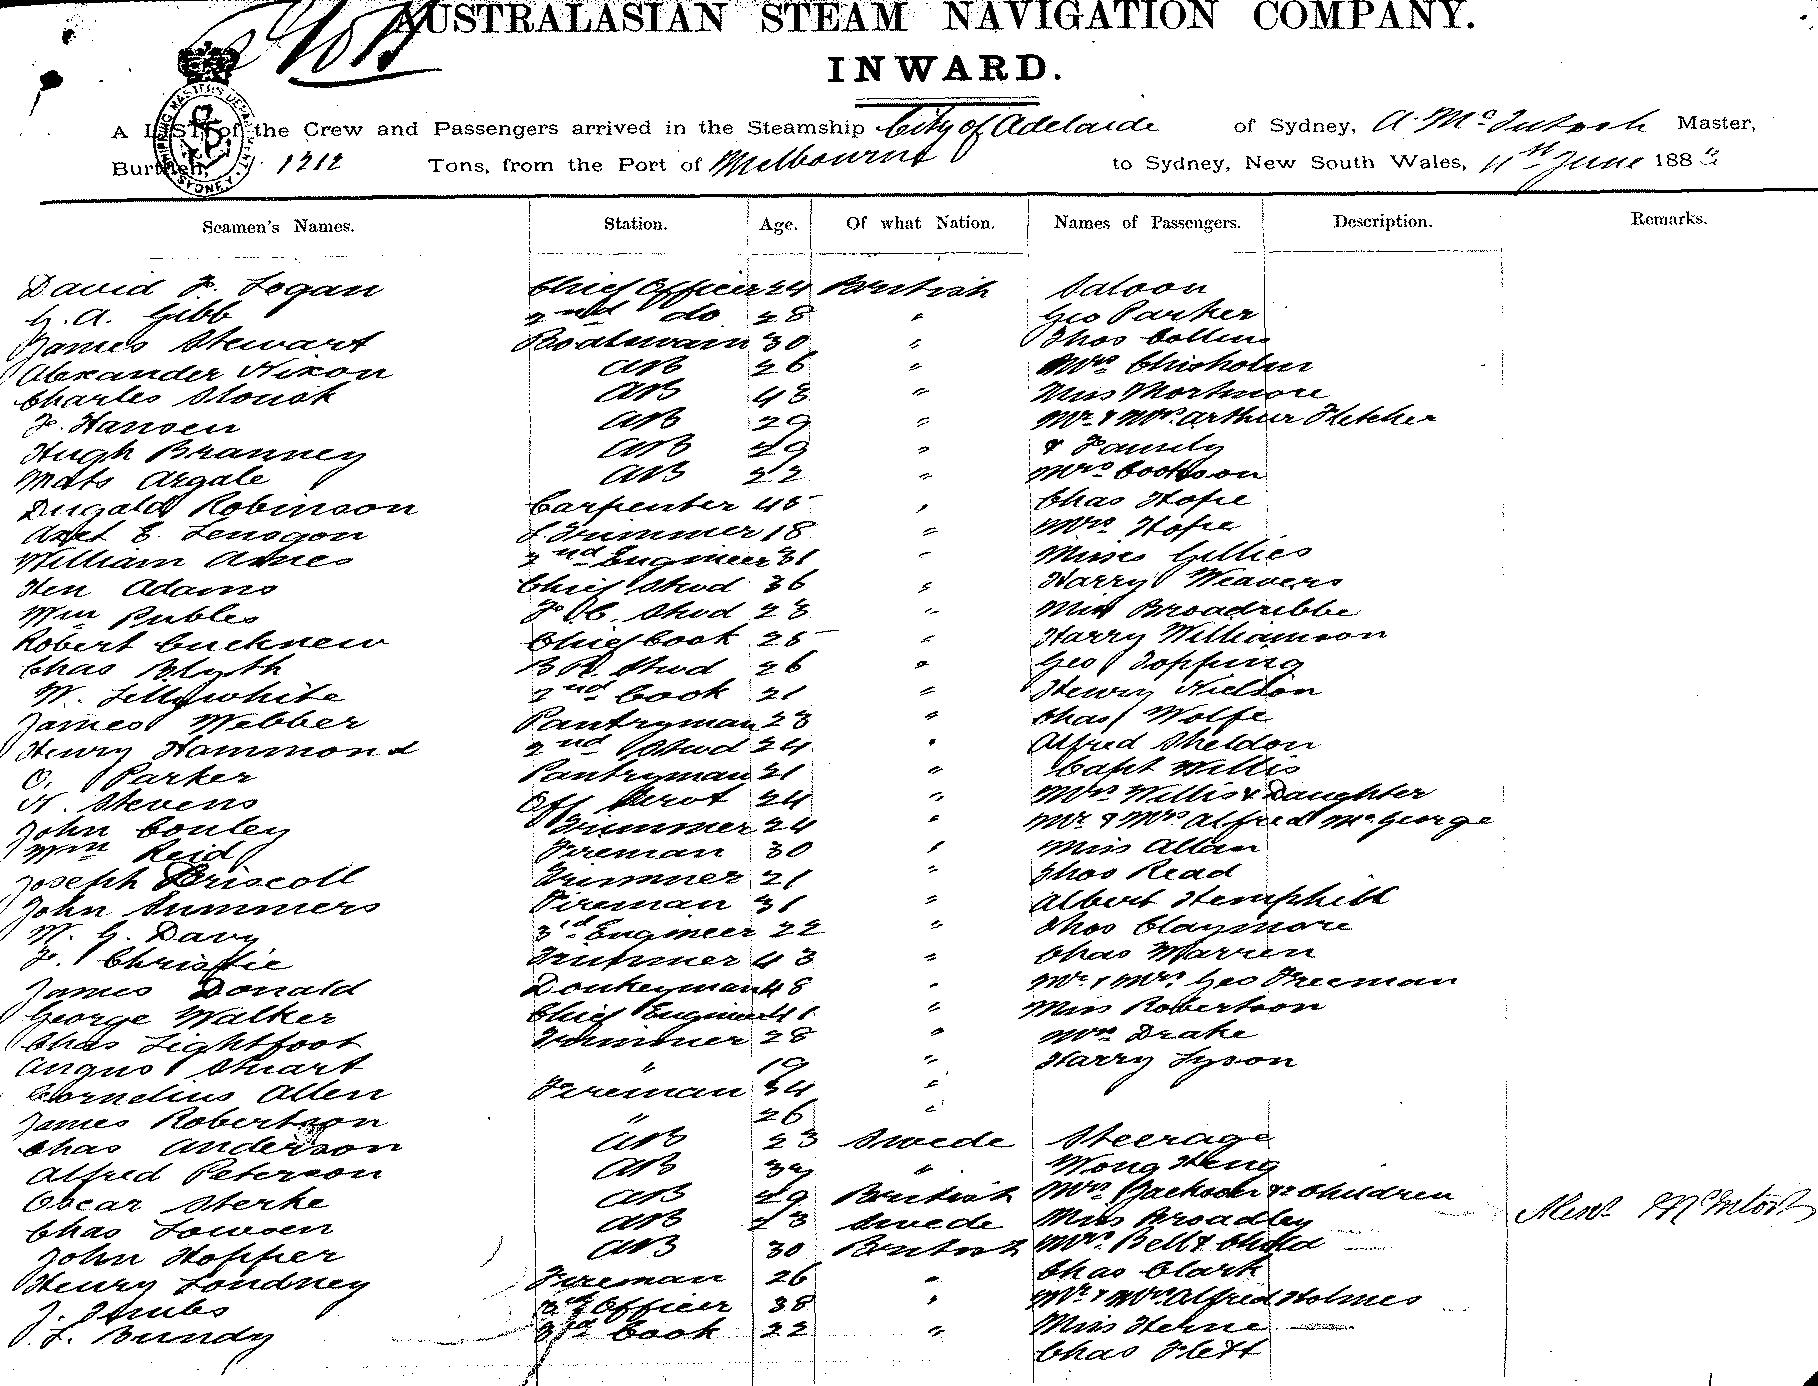 AUSTRALASIAN STEAM NAVIGATION COMPANY.
INWARD.
A LIST of the Crew and Passengers arrived in the Steamship City of Adelaide of Sydney, A. McIntosh Master,
Burthen, 1212 Tons, from the Port of Melbourne to Sydney, New South Wales, 11th June 188
Seamen's Names. Station. Age. Of what Nation. Names of Passengers. Description. Remarks.
David F. Logan Chief Officer 24 British Saloon
G. A. Gibb 2nd do 28 " Geo Parker
James Stewart Boatswain 30 " Thos Collins
Alexander Nixon AB 26 " Mrs Chisholm
Charles AB 43 " Miss Mortimore
F. Hansen AB 29 " Mr & Mrs Arthur Fletcher
Hugh Branney AB 29 " & Family
Mats Argale AB 22 " Mrs Cookson
Dugald Robinson Carpenter 45 " Chas Hope
Axel E. Trimmer 18 " Mrs Hope
William Ames 2nd Engineer 31 " Misses Gillies
Hen Adams Chief Stwd 36 " Harry Weavers
Wm Publes F.C. Stwd 23 " Miss Broadribbe
Robert Chief Cook 25 " Harry Williamson
Chas Blyth B.R. Stwd 26 " Geo Topping
W. Lillywhite 2nd Cook 21 " Henry Nielson
James Webber Pantryman 23 " Chas Wolfe
Henry Hammond 2nd Stwd 24 " Alfred Sheldon
O. Parker Pantryman 21 " Capt Willis
H. Stevens Off Servt 24 " Mrs Willis & Daughter
John Conley Trimmer 24 " Mr & Mrs Alfred McGeorge
Wm Reid Fireman 30 " Miss Allan
Joseph Driscoll Trimmer 21 " Thos Read
John Summers Fireman 31 " Albert Hemphill
W. G. Davy 3rd Engineer 22 " Thos Claymore
F. Christie Trimmer 43 " Chas Warren
James Donald Donkeyman 48 " Mr & Mrs Geo Freeman
George Walker Chief Engineer 41 " Miss Robertson
Chas Lightfoot Trimmer 28 " Mrs Drake
Angus Stuart " 19 " Harry Lyson
Cornelius Allen Fireman 34 "
James Robertson " 26 "
Chas Anderson AB 23 Swede Steerage
Alfred Peterson AB 39 " Wong Heng
Oscar Sterke AB 29 British Mrs Jackson & 2 Children
Chas Lowsen AB 23 Swede Miss Broadley
John Hopper AB 30 British Mrs Bell & Child
Henry Londney Fireman 26 " Chas Clark
J. 3rd Officer 38 " Mr & Mrs Alfred Holmes
L. Bundy 3rd Cook 22 " Miss Herne
Chas Flett
Alexr McIntosh